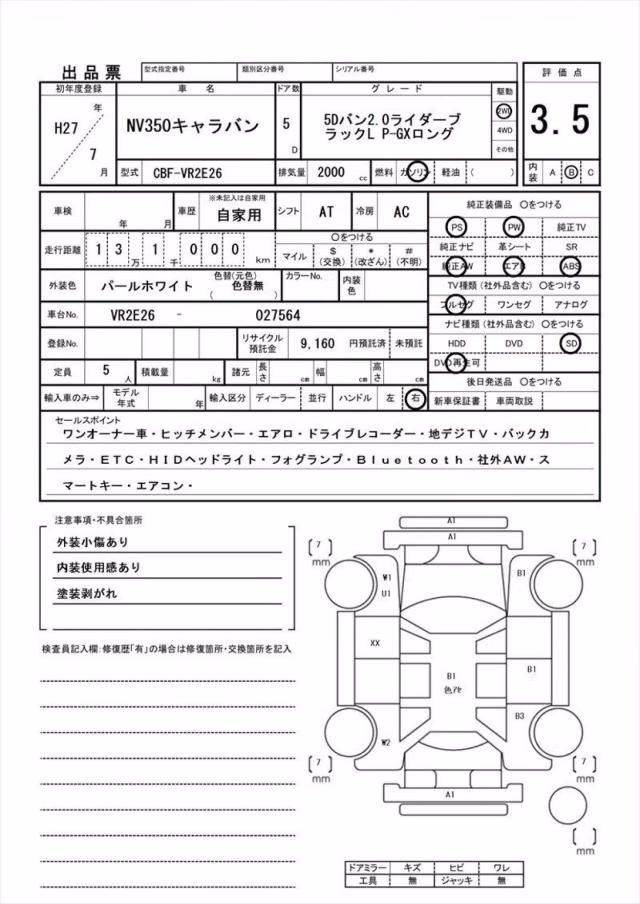 出品票 型式指定番号 類別区分番号 シリアル番号
初年度登録 車名 ドア数 グレード 駆動 評価点
H27 年 7 月 NV350キャラバン 5 D 5Dバン2.0ライダーブ
ラックL P-GXロング 2WD 4WD その他 3.5
型式 CBF-VR2E26 排気量 2000 cc 燃料 ガソリン 軽油 ( ) 内装 A B C
車検 年 月 車歴 ※未記入は自家用 自家用 シフト AT 冷房 AC 純正装備品 〇をつける
PS PW 純正TV
走行距離 1 3 万 1 千 0 0 0 km 〇をつける マイル $ (交換) * (改ざん) # (不明) 純正ナビ 革シート SR
純正AW エアB ABS
外装色 パールホワイト 色替(元色) ( 色替無 ) カラーNo. 内装色 TV種類(社外品含む) 〇をつける
フルセグ ワンセグ アナログ
車台No. VR2E26 - 027564 ナビ種類(社外品含む) 〇をつける
登録No. リサイクル預託金 9,160 円預託済 未預託 HDD DVD SD
DVD再生可
定員 5 人 積載量 kg 諸元 長さ cm 幅 cm 高さ cm 後日発送品 〇をつける
輸入車のみ⇒ モデル年式 年 輸入区分 ディーラー 並行 ハンドル 左 右 新車保証書 車両取説
セールスポイント
ワンオーナー車・ヒッチメンバー・エアロ・ドライブレコーダー・地デジTV・バックカ
メラ・ETC・HIDヘッドライト・フォグランプ・Bluetooth・社外AW・ス
マートキー・エアコン・
注意事項・不具合箇所
外装小傷あり
内装使用感あり
塗装剥がれ
検査員記入欄:修復歴「有」の場合は修復箇所・交換箇所を記入
A1
A1
7 mm 7 mm
W1 B1
U1
XX B1 B1
色ｱｾ
W2 B3
7 mm 7 mm
A1
mm
ドアミラー キズ ヒビ ワレ
工具 無 ジャッキ 無